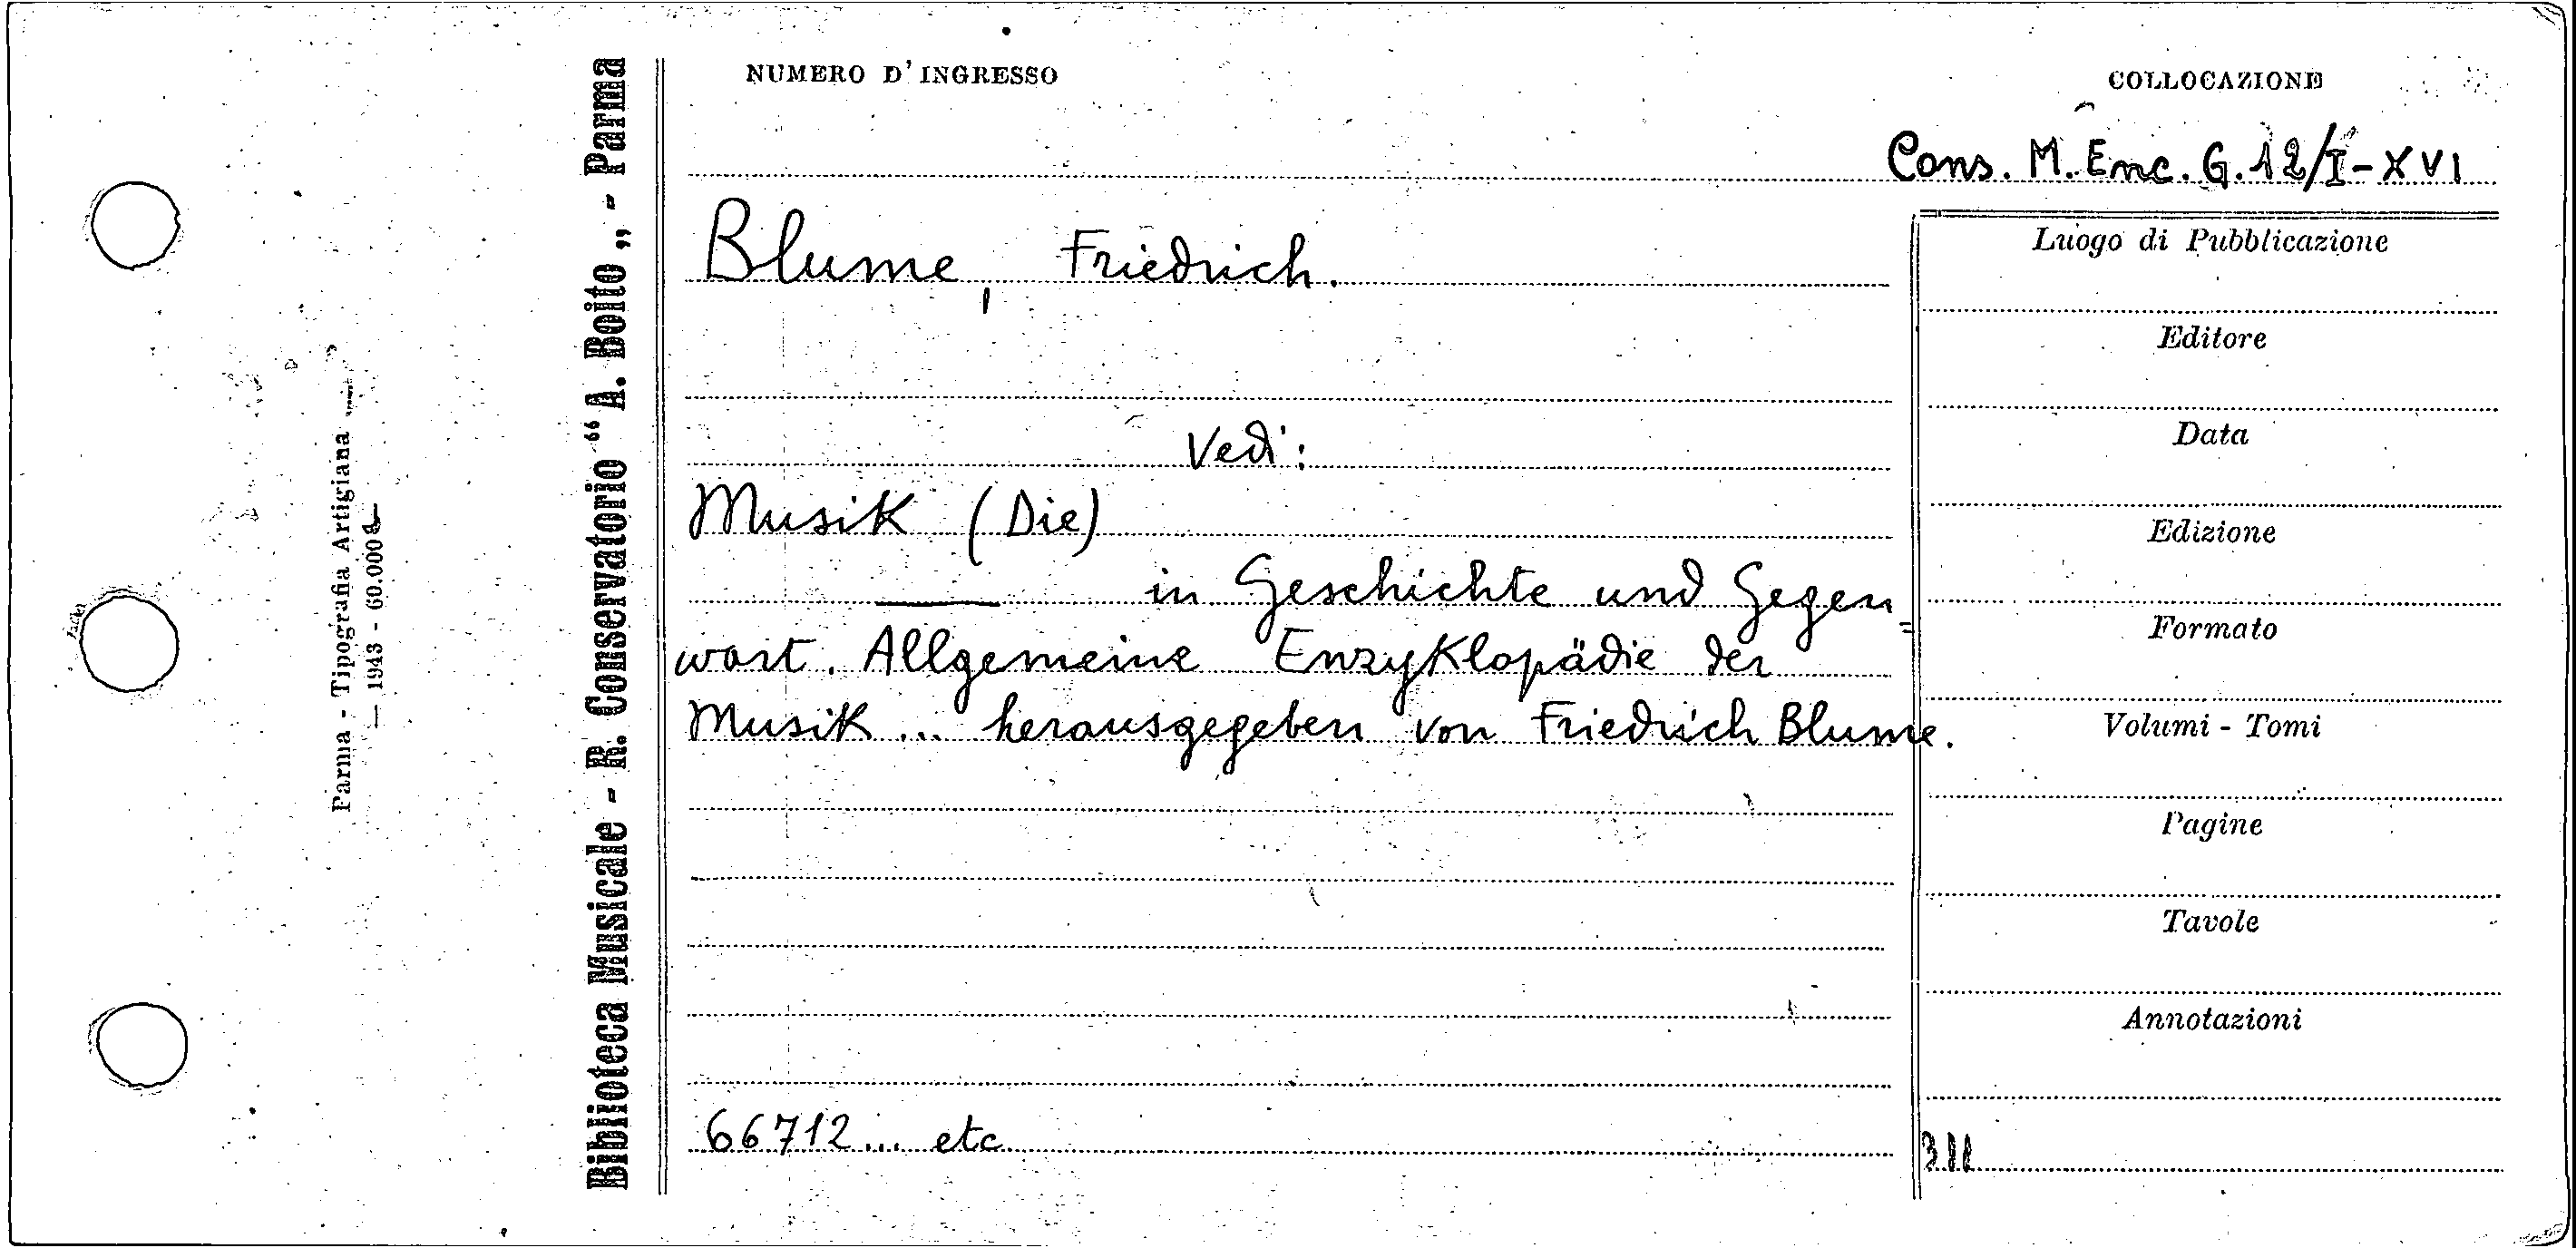 NUMERO D'INGRESSO
COLLOCAZIONE
Cons. M. Enc. G. 12/I-XVI
Blume, Friedrich.
Vedi:
Musik (Die)
—— in Geschichte und Gegen=
wart. Allgemeine Enzyklopädie der
Musik ... herausgegeben von Friedrich Blume.
66712 ... etc
Luogo di Pubblicazione
Editore
Data
Edizione
Formato
Volumi - Tomi
Pagine
Tavole
Annotazioni
Biblioteca Musicale - R. Conservatorio “A. Boito„ - Parma
Parma - Tipografia Artigiana
— 1943 - 60.000